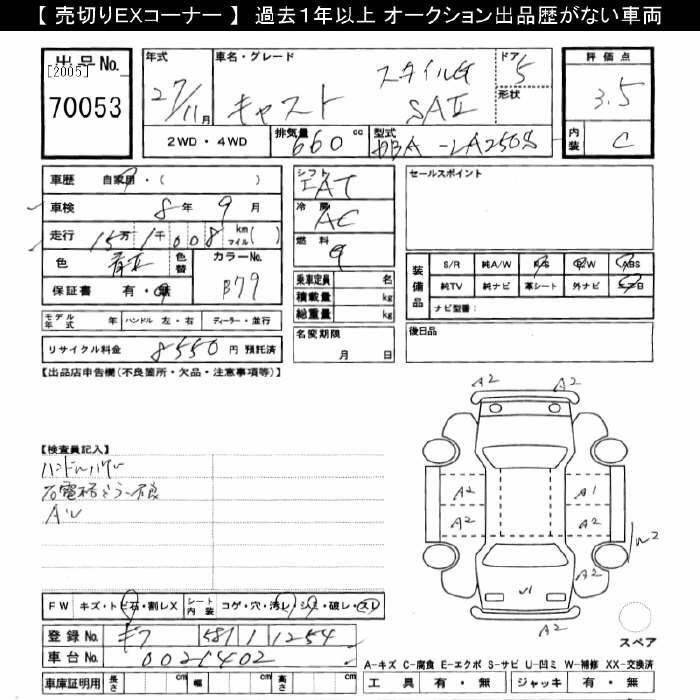 【 売切りEXコーナー 】 過去1年以上 オークション出品歴がない車両
出品No.
[2005]
70053
年式
27/11月
車名・グレード
キャスト スタイルG SAⅡ
ドア
5
形状
評価点
3.5
内装
C
2WD・4WD
排気量
660 cc
型式
DBA-LA250S
車歴 自家用・( )
車検 8年 9月
走行 15万 1千 008 km マイル( )
色
青Ⅱ
色替
カラーNo.
B79
保証書 有・無
モデル年式 年 ハンドル 左・右 ディーラー・並行
リサイクル料金 8550 円 預託済
シフト
AT
冷房
AC
燃料
乗車定員 名
積載量 kg
総重量 kg
名変期限
月 日
セールスポイント
装備品
S/R 純A/W P/S P/W ABS
純TV 純ナビ 革シート 外ナビ エアB
ナビ型番:
後日品
【出品店申告欄(不良箇所・欠品・注意事項等)】
【検査員記入】
石電格ミラー不良
FW キズ・トビ石・割レX シート内装 コゲ・穴・汚レ・シミ・破レ・スレ
登録No. ギフ 581 1254
車台No. 0021402
車庫証明用 長さ cm 幅 cm 高さ cm
A2
A2
A2
A1
A2
A2
W2
A2
A2
スペア
A-キズ C-腐食 E-エクボ S-サビ U-凹ミ W-補修 XX-交換済
工具 有・無 ジャッキ 有・無